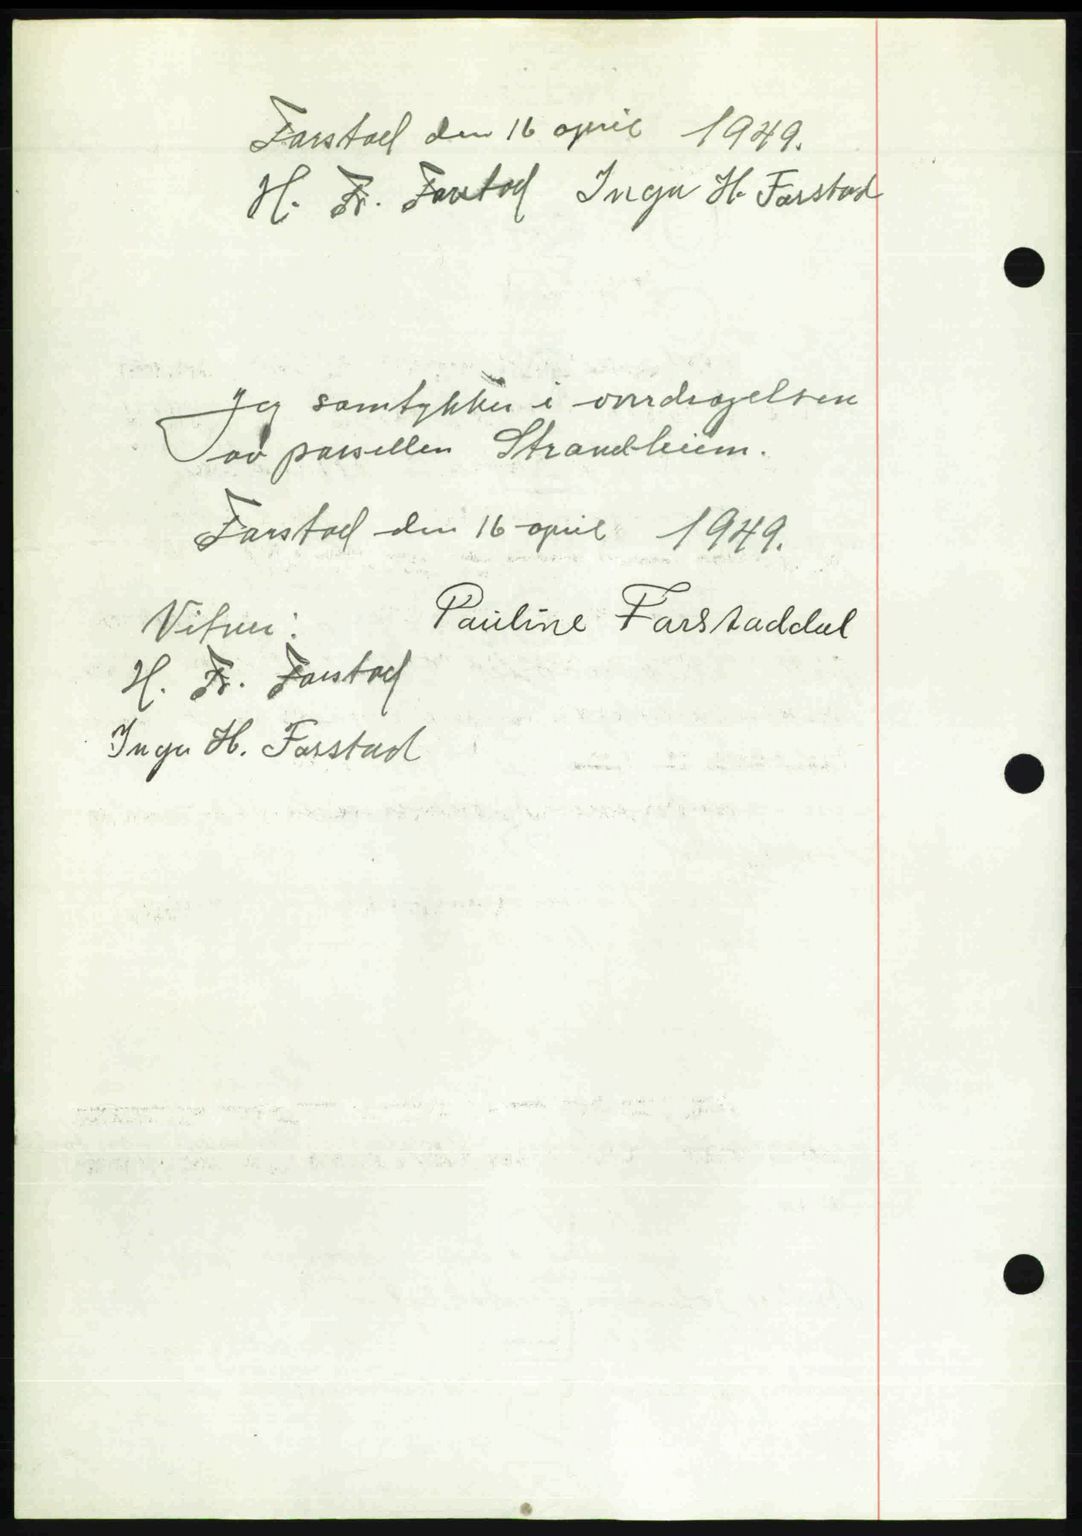 Farstad den 16 april 1949.
H. Fr. Farstad Inga H. Farstad
Jeg samtykker i overdragelsen
av parsellen Strandheim.
Farstad den 16 april 1949.
Vitner: Pauline Farstaddal
H. Fr. Farstad
Inga H. Farstad